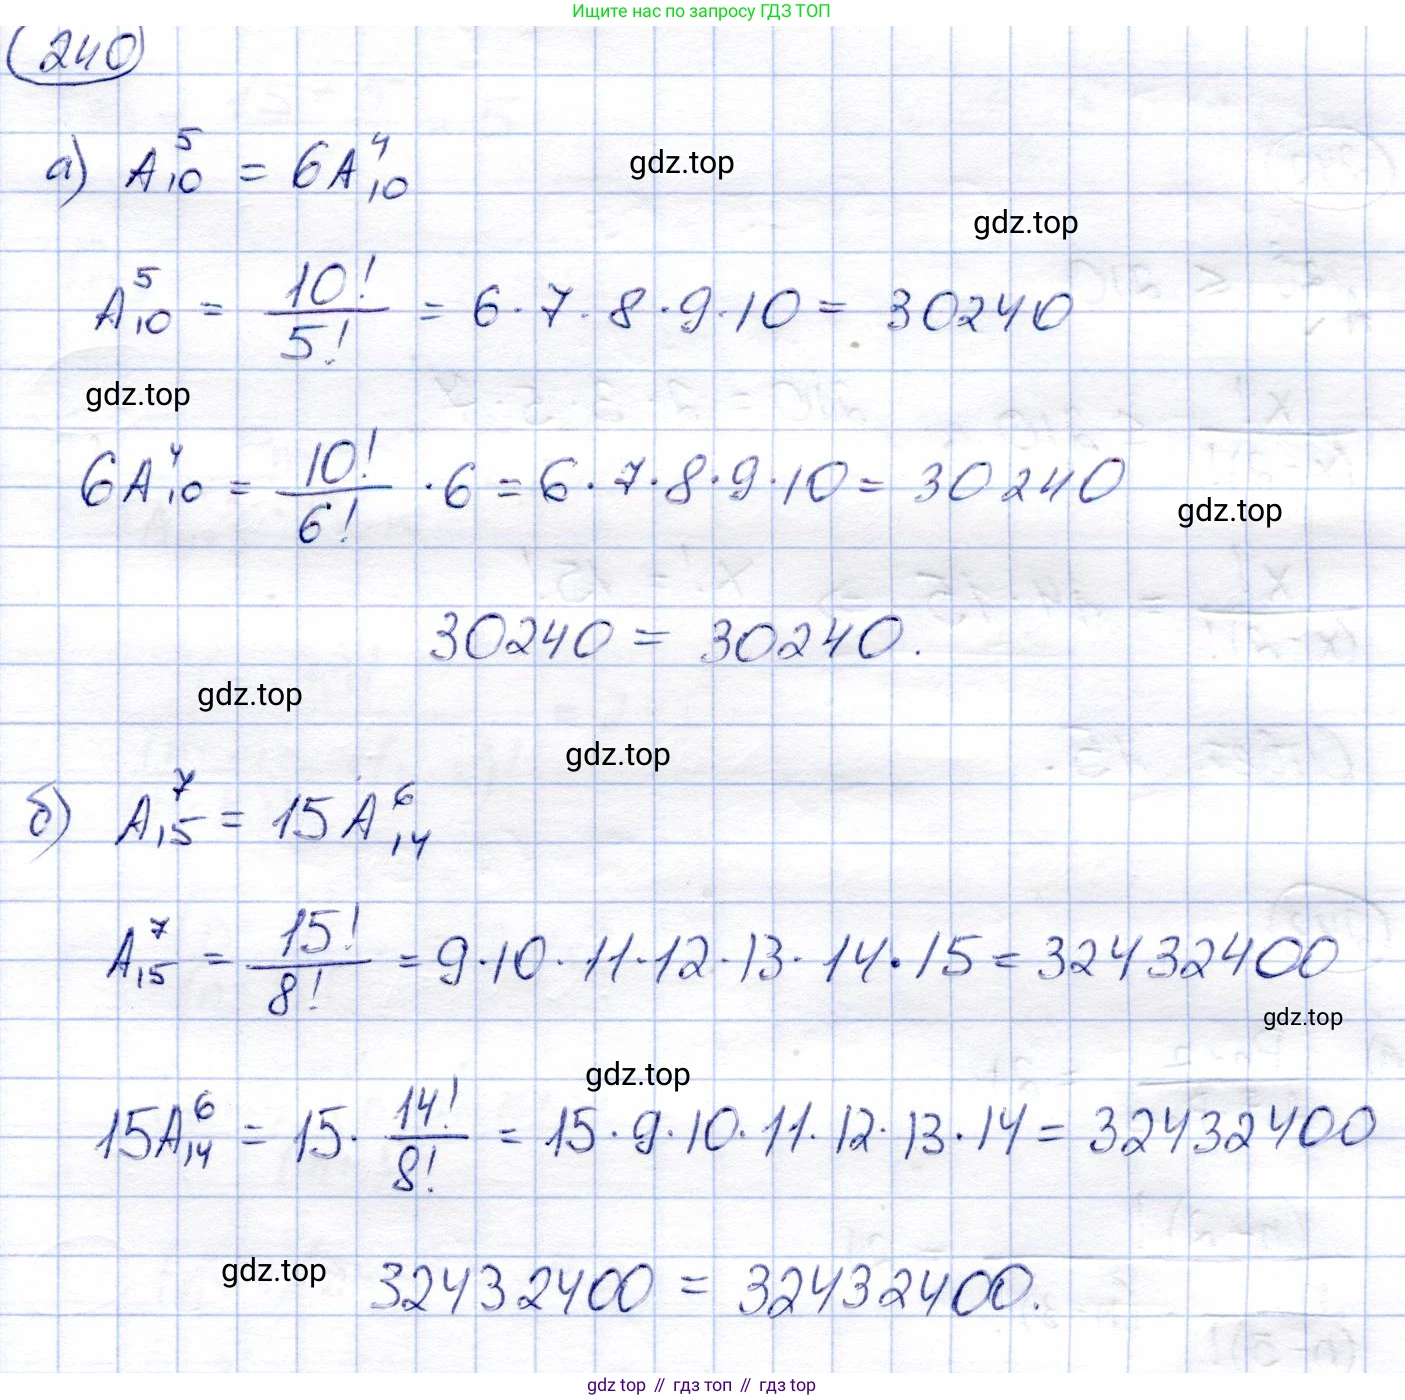 Ищите нас по запросу ГДЗ ТОП
240
а) A₁₀⁵ = 6A₁₀⁴
gdz.top
gdz.top
A₁₀⁵ = 10!/5! = 6·7·8·9·10 = 30240
gdz.top
6A₁₀⁴ = 10!/6! · 6 = 6·7·8·9·10 = 30240
gdz.top
30240 = 30240.
gdz.top
gdz.top
б) A₁₅⁷ = 15A₁₄⁶
A₁₅⁷ = 15!/8! = 9·10·11·12·13·14·15 = 32432400
gdz.top
gdz.top
15A₁₄⁶ = 15· 14!/8! = 15·9·10·11·12·13·14 = 32432400
gdz.top
32432400 = 32432400.
gdz top // гдз топ // гдз top